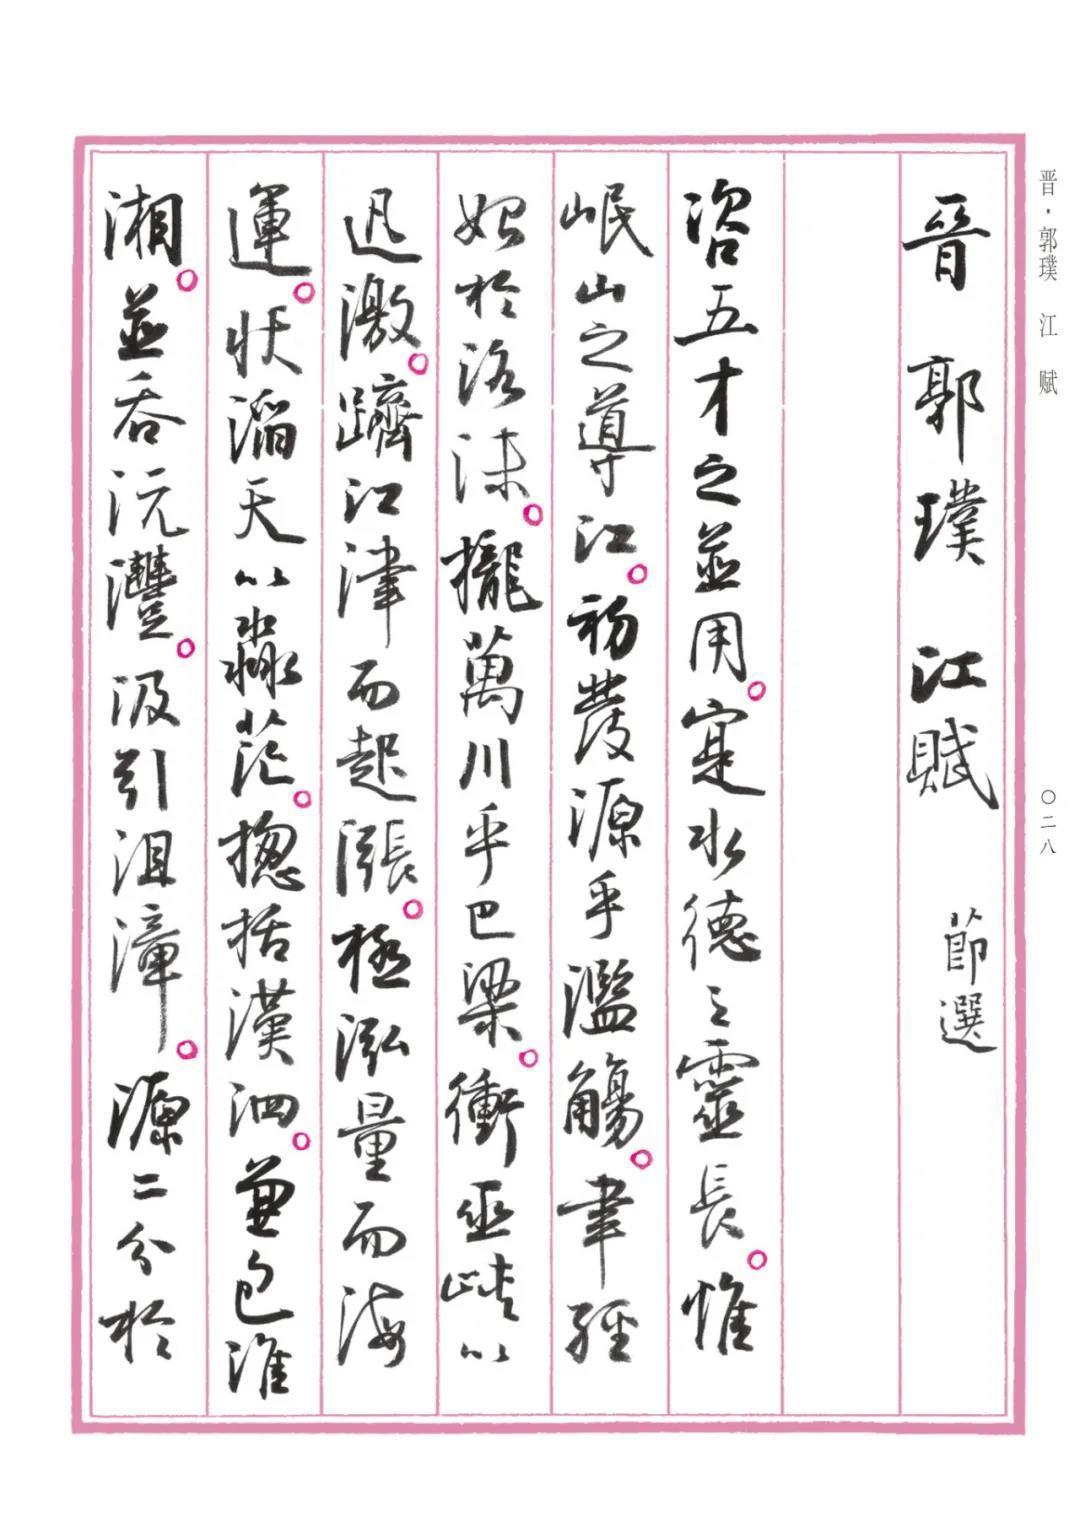 晋·郭璞 江赋
〇二八
晉 郭璞 江賦 節選
咨五才之並用。寔水德之靈長。惟
岷山之導江。初發源乎濫觴。聿經
始於洛沬。攏萬川乎巴梁。衝巫峽以
迅激。躋江津而起漲。極泓量而海
運。狀滔天以淼茫。揔括漢泗。兼包淮
湘。並吞沅灃。汲引沮漳。源二分於